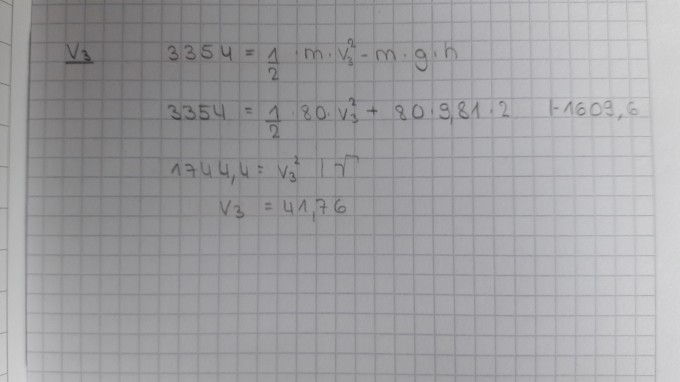 V3 3354 = 1/2 · m · v₃² - m · g · h
3354 = 1/2 · 80 · v₃² + 80 · 9,81 · 2 |-1609,6
1744,4 = v₃² | √
v₃ = 41,76